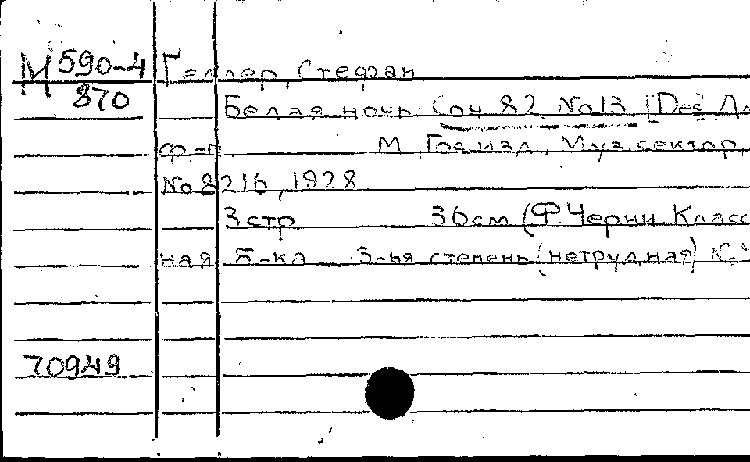 М 590-4
870
Геллер, Стефан
Белая ночь. Соч. 82 No 13 [Des] Дл
ф-п. М., Гос. изд., Муз. сектор,
No 8216, 1928
3 стр 36 см (Ф. Черни Класс
ная б-ка 3-ья степень (нетрудная)
70949